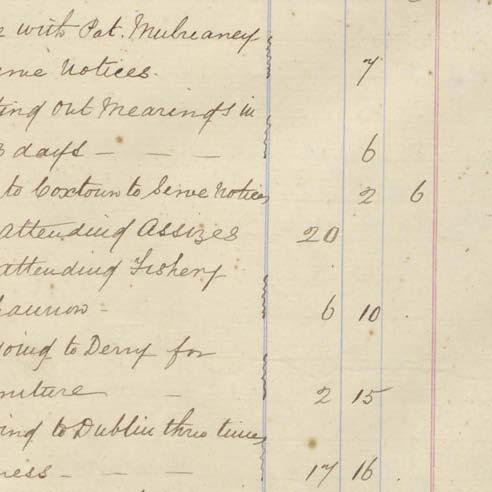 with Pat. Mulreaney
erve Notices. 7
ting out Mearings in
3 days — — — 6
to Coxtown to Serve Notices 2 6
attending Assizes 20
attending Fishery
hannon - 6 10
oing to Derry for
rniture — 2 15
ing to Dublin three times
ness — — — 17 16